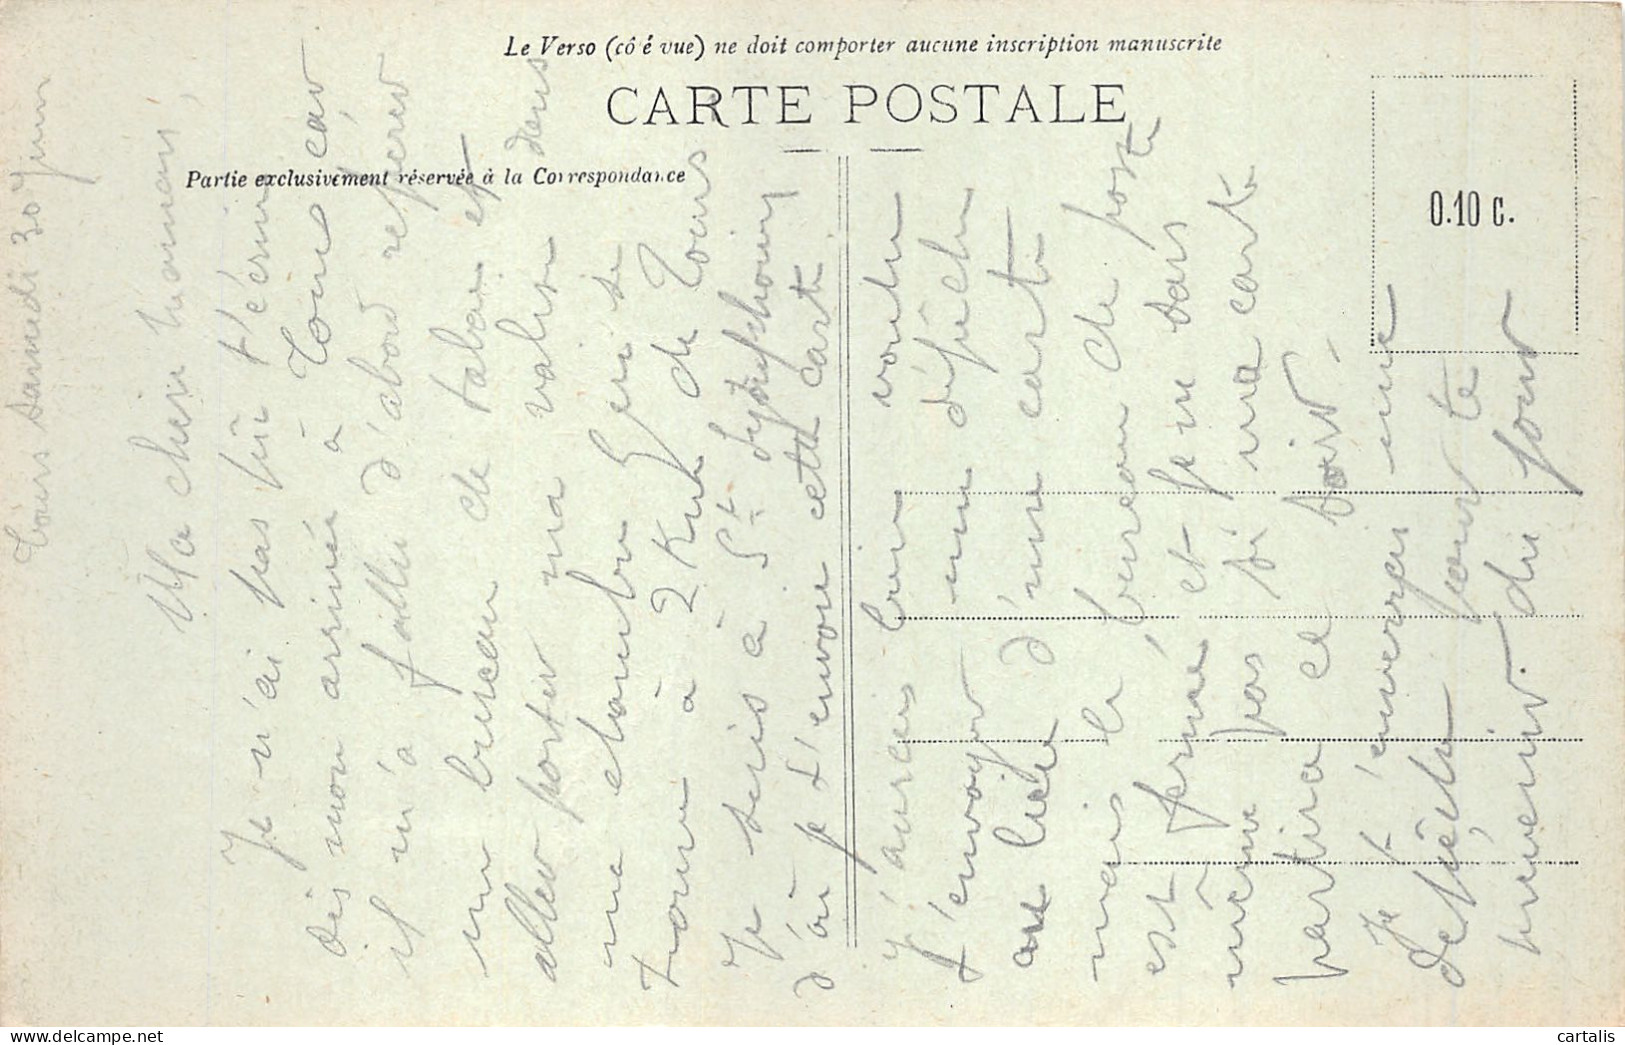 Le Verso (côé vue) ne doit comporter aucune inscription manuscrite
CARTE POSTALE
Partie exclusivement réservée à la Correspondance
0.10 c.
Tours samedi 30 Juin
Ma chère maman,
Je n'ai pas pu t'écrire
dès mon arrivée à Tours car
il m'a fallu d'abord
un bureau de tabac et
aller porter ma valise dans
ma chambre
à 2 Km de Tours
Je suis à St Symphorien
d'où je t'envoie cette carte
J'aurais bien voulu
t'envoyer une dépêche
au lieu d'une carte
mais le bureau de poste
est fermé et je ne sais
même pas si ma carte
partira ce soir.
Je t'enverrai une
dépêche pour te
prévenir du jour